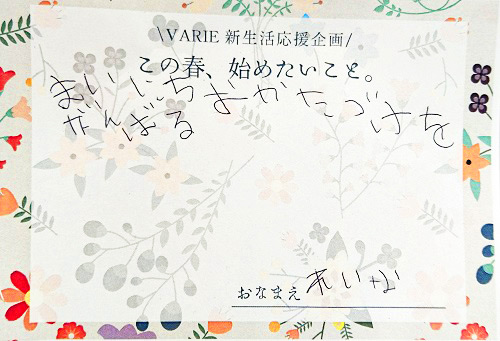 \VARIE 新生活応援企画/
この春、始めたいこと。
まいにちおかたづけを
がんばる
おなまえ れいな